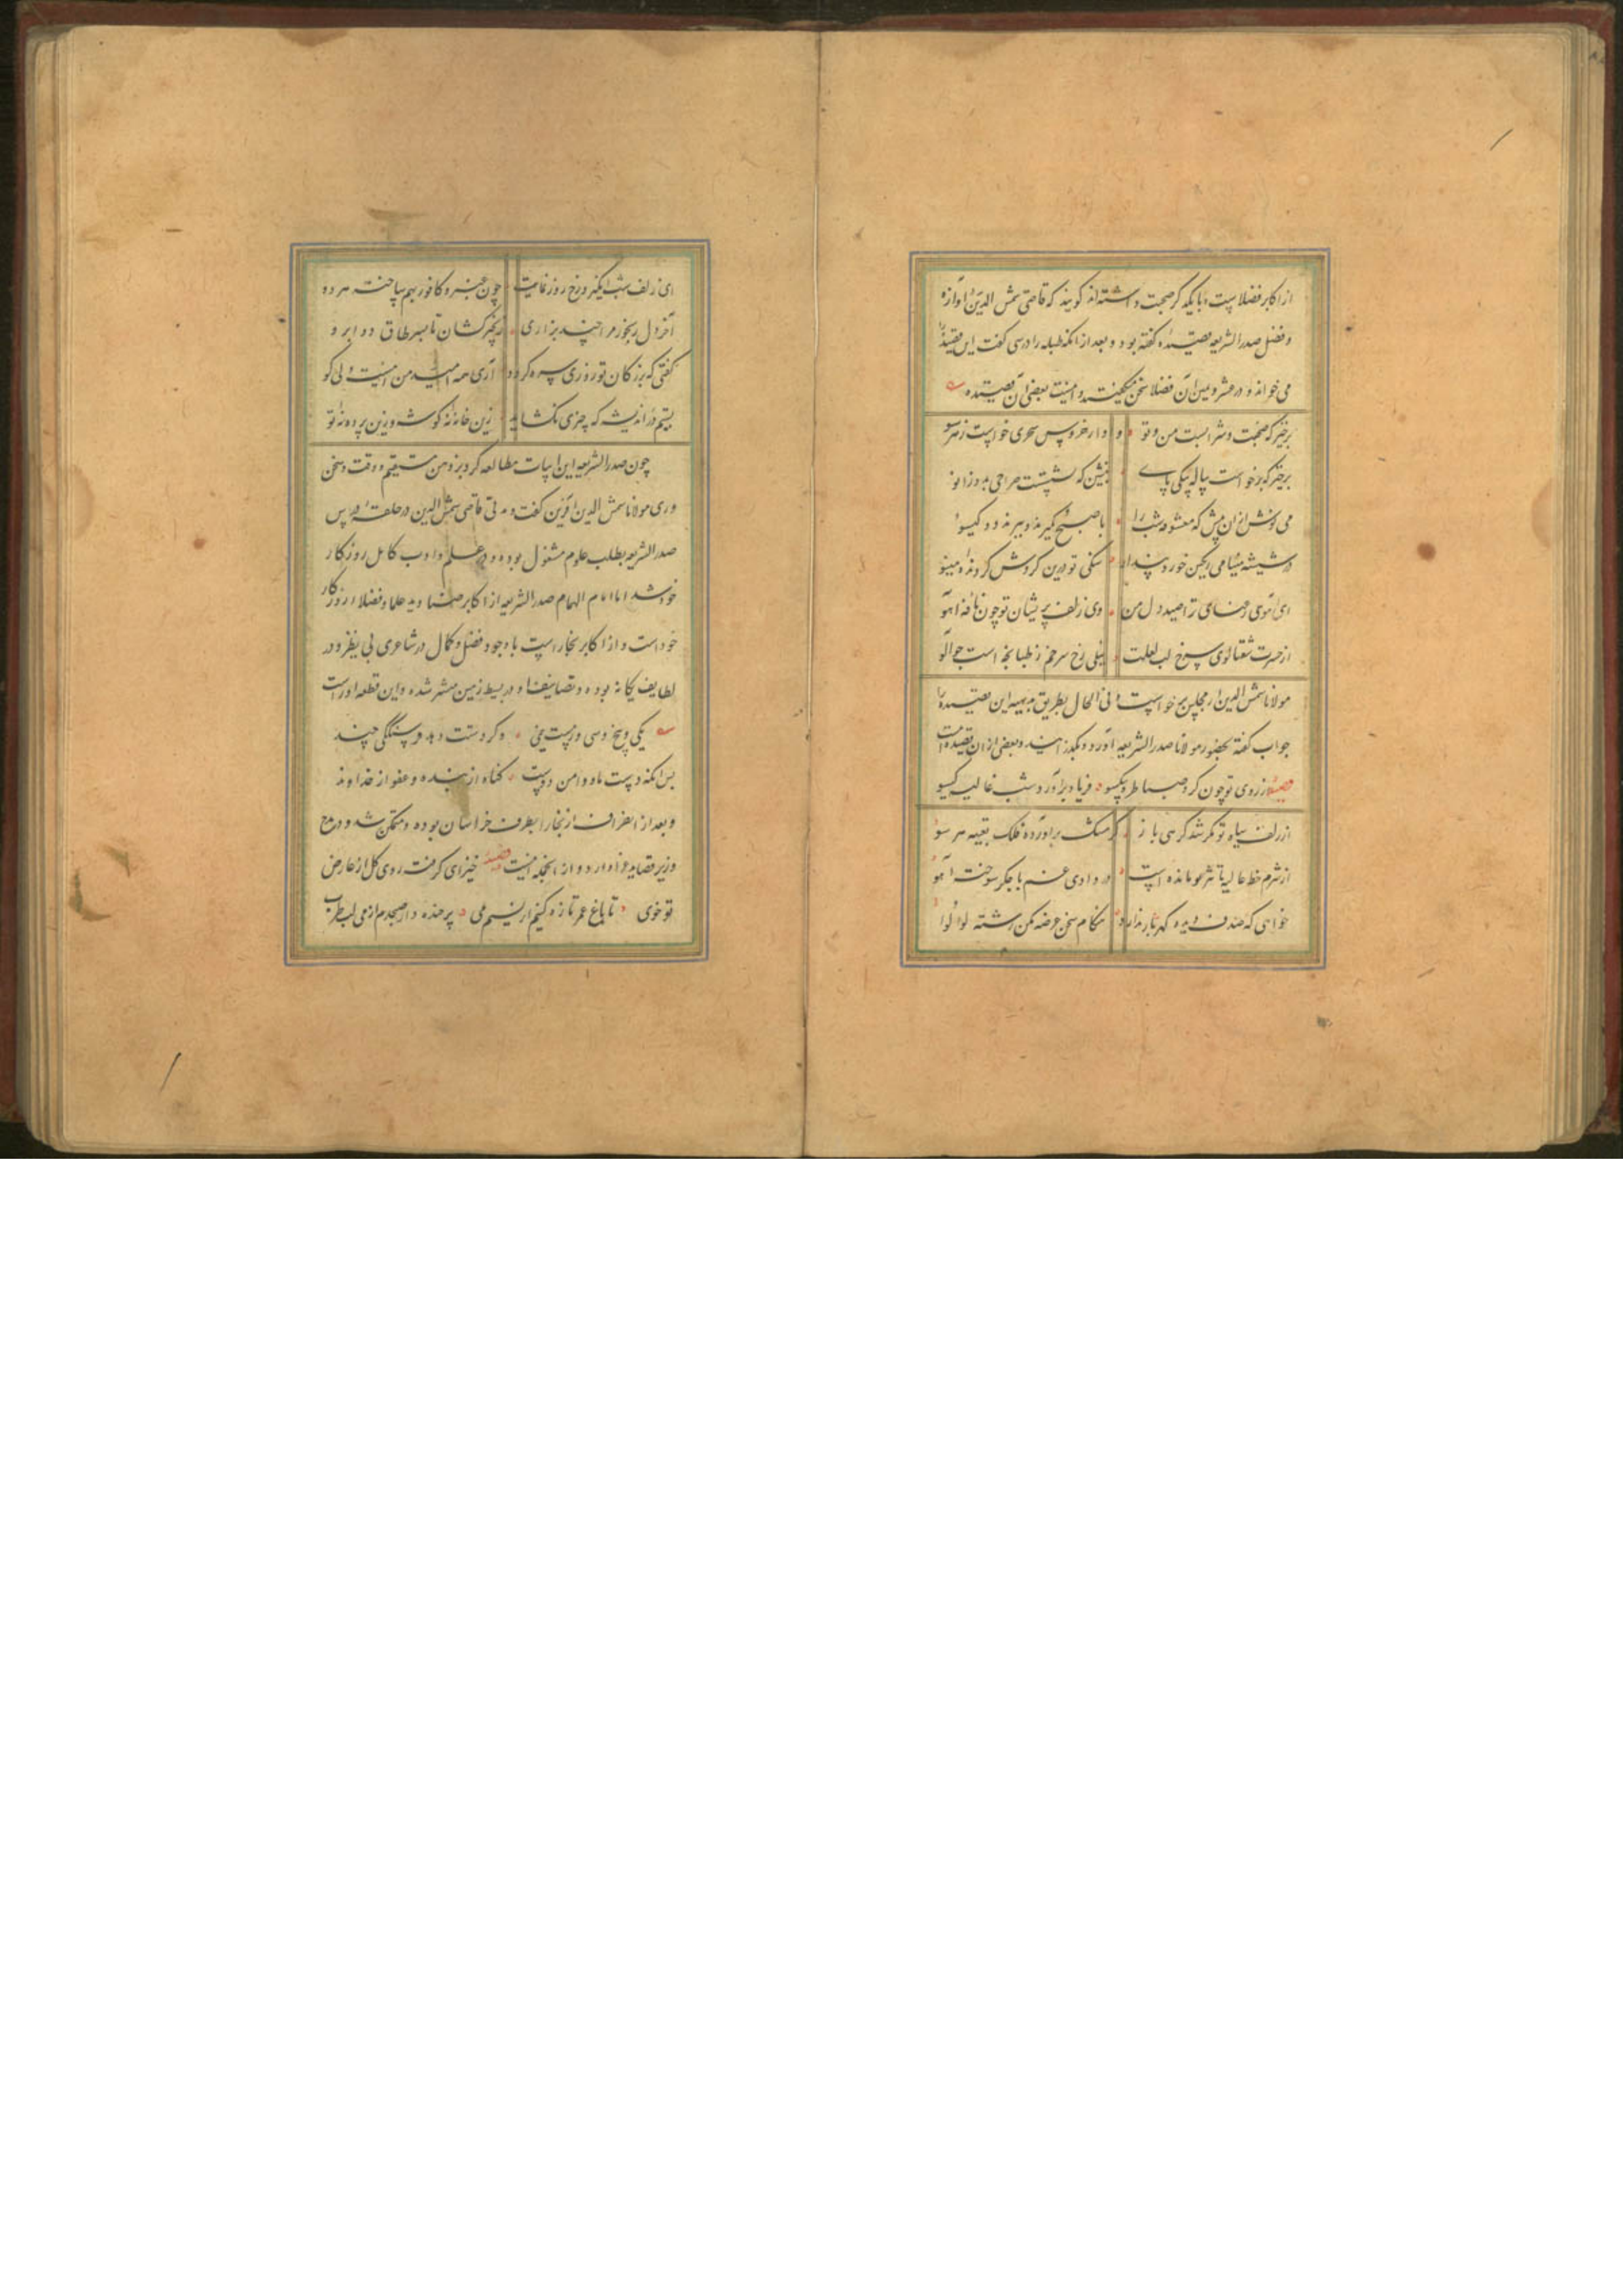 از اکابر فضلاست و با یکدیگر صحبت داشته‌اند گویند که قاضی شمس الدین آوازه
و فضل صدر الشریعه قصیده گفته بود و بعد از آنکه طلبه را درسی گفت این قصیده را
می خواندند در عشر و یسر آن فضلا سخن میگفتند و اینست بعضی از آن قصیده
برخیز که صبحست و شرابست من و تو و آواز خروس سحری خواست ز هر سو
برخیز که برخواست پیاله بیکی پای بنشین که نشستست صراحی بدو زانو
می نوش از آن پیش که معشوقه شب را با صبح بگیرند و ببرند دو گیسو
در شیشه مینا می رنگین خور و پندار سنگی تو درین گردش گردنده مینو
ای آهوی رعنای ترا صید دل من وی زلف پریشان تو چون نافه آهو
از حسرت شفتالوی سرخ لب لعلت نیلی رخ سرخم ز طبانچه است چو آلو
مولانا شمس الدین از مجلس برخواست و فی الحال بطریق بدیهه این قصیده را
جواب گفته بحضور مولانا صدر الشریعه آورد و بگذرانید و بعضی از آن قصیده است
قصیده از روی تو چون کرد صبا طره بیکسو فریاد برآورد شب غالیه گیسو
از زلف سیاه تو مگر شد گرهی باز کز مشک برآورده فلک تعبیه هر سو
از شرم خط غالیه تاثیر تو مانده است در وادی غم با جگر سوخته آهو
خواهی که صدف دیده گهربار ندارد هنگام سخن عرضه مکن رشته لولو
ای زلف شب انگیز و رخ روز نمایت چون عنبر و کافور بهم ساخته هر دو
آخر دل رنجور مرا چند برآری زنجیر کشان تا بسر طاق دو ابرو
گفتی که بزر کان تو روزی سره گردد آری همه امید من اینست ولی کو
بستم در اندیشه که چیزی نگشاید زین خانه نه گوشه و زین پرده نه تو
چون صدر الشریعه این ابیات مطالعه کرد بر ذهن مستقیم و دقت و سخن
وری مولانا شمس الدین آفرین گفت و مدتی قاضی شمس الدین در حلقه درس
صدر الشریعه بطلب علوم مشغول بوده و در علم و ادب کامل روزگار
خود شد اما امام الهمام صدر الشریعه از اکابر صنادید علما و فضلاء روزگار
خود است و از اکابر بخار است با وجود فضل و کمال در شاعری بی نظیر و در
لطایف یگانه بوده و تصانیف او در بسیط زمین منتشر شده و این قطعه او راست
یکی و پنج و سی وز بیست نیمی و گر دستت دهد فرسنگکی چند
پس آنگه دست ما و دامن دوست گناه از بنده و عفو از خداوند
و بعد از انحراف از بخارا بطرف خراسان بوده و متمکن شد و در مدح
وزیر قصاید غرا دارد و از آنجمله اینست قصیده خیز ای گرفته روی گل از عارض
تو خوی تا باغ عمر تازه کنیم از نسیم می پر خنده دار صبحدم از می لب طرب